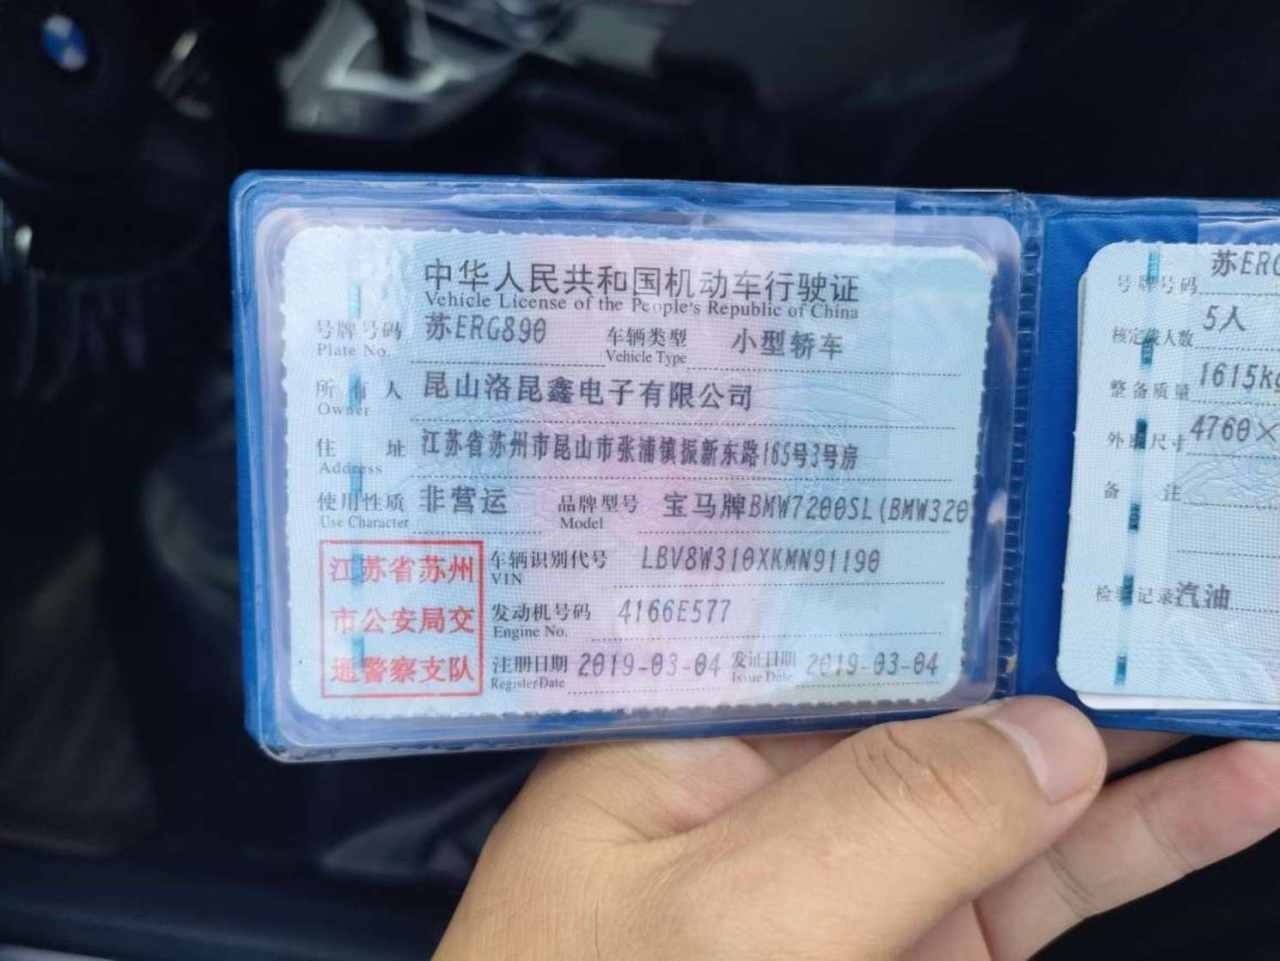 中华人民共和国机动车行驶证
Vehicle License of the People's Republic of China
号牌号码 苏ERG890 车辆类型 小型轿车
Plate No. Vehicle Type
所有人 昆山洛昆鑫电子有限公司
Owner
住址 江苏省苏州市昆山市张浦镇振新东路165号3号房
Address
使用性质 非营运 品牌型号 宝马牌BMW7200SL(BMW320
Use Character Model
江苏省苏州
市公安局交
通警察支队
车辆识别代号 LBV8W310XKMN91190
VIN
发动机号码 4166E577
Engine No.
注册日期 2019-03-04 发证日期 2019-03-04
Register Date Issue Date
号牌号码 苏ERG
核定载人数 5人
整备质量 1615k
外廓尺寸 4760×
备注
检验记录 汽油